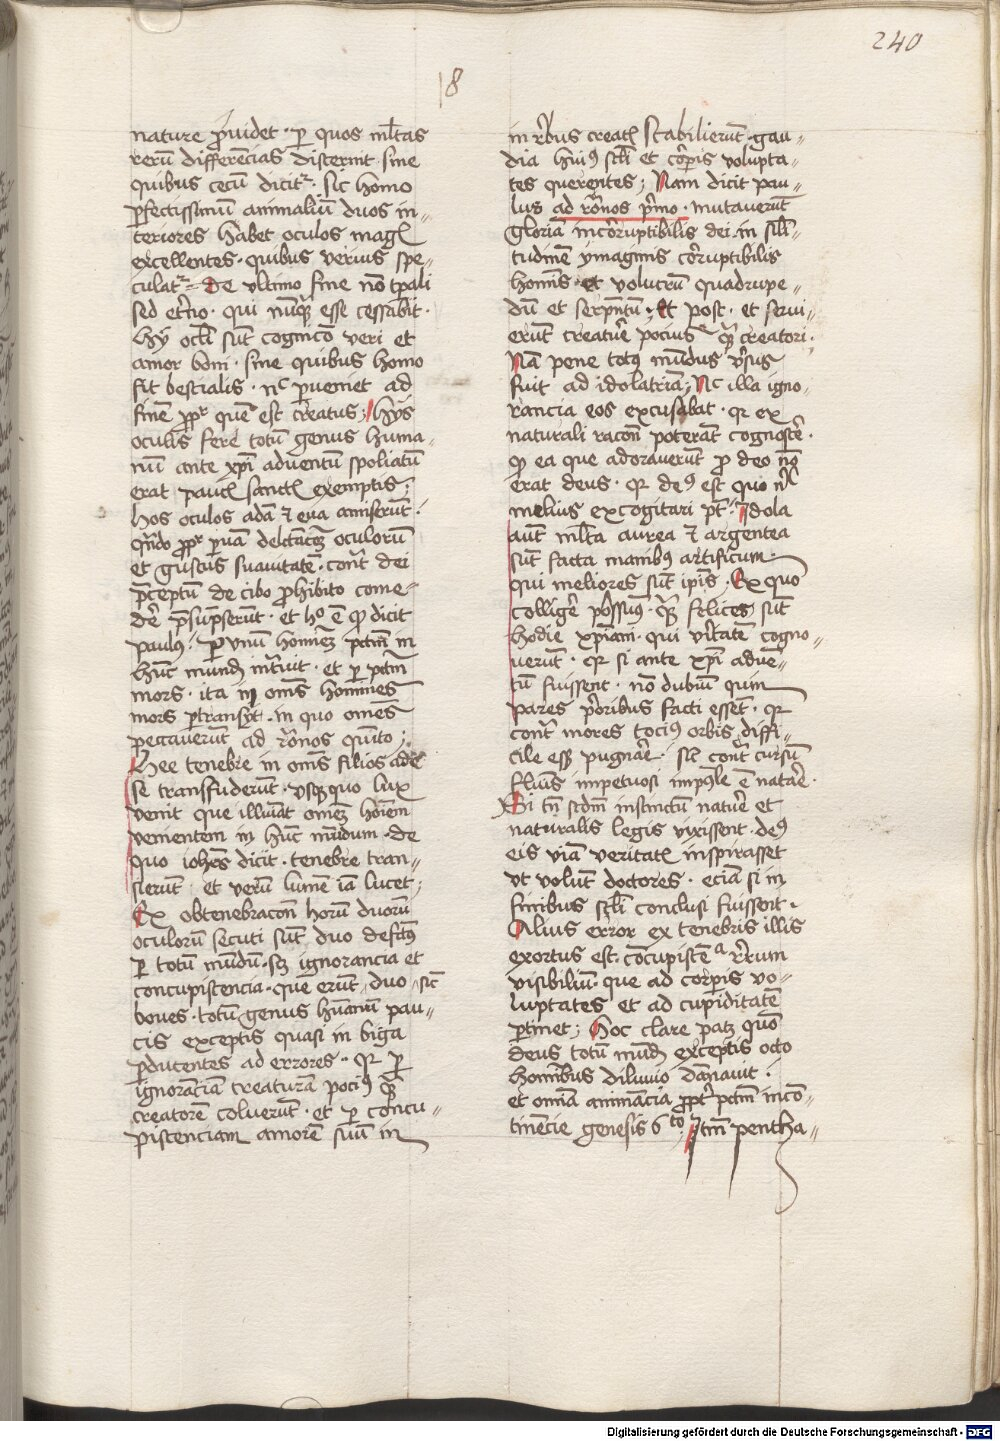 240
18
nature p̄uidet · p quos ml̄tas
rerū differēcias discernit sine
quibus cecū dicit᷑ · Sic homo
ꝑfectissimū animaliū duos in⸗
teriores habet oculos maḡ
excellentes · quibus verius spe⸗
culat᷑ · De vltimo fine nō tp̄ali
sed et̄no · qui nūq̄ esse cessabit ·
Hÿ ocl̄i sūt cognicō veri et
amor boni · sine quibus homo
fit bestialis · nᶜ ꝑueniet ad
finē ꝓpᵗ quē est creatus ; Hÿs
oculis fere totū genus huma⸗
nū ante xp̄i aduentū spoliatū
erat paucꝭ sanctꝭ exemptis ;
Hos oculos adā ⁊ eua amiserūt ·
qn̄do ꝓpᵗ
et gustus suauitatē · cont᷑ dei
p̄ceptū de cibo prohibito come⸗
de᷑ p̄sūpserūt · et hº ē qd dicit
paulus · Per vnū hominē pctm̄ in
hūc mundū int᷑uit · et ꝑ pctm̄
mors · ita in om̄s homines
mors ꝑtransÿt · in quo omēs
peccauerūt ad rōnos quīto ;
Hee tenebre in om̄s filios ade
se transfuderūt · vsq quo lux
venit que illuīat omnē hoīem
venientem in hūc mūdum · de
quo ioh̄es dicit · tenebre tran⸗
sierūt et verū lumē iā lucet ;
Ex obtenebracōn horū duorū
oculorū secuti sūt duo defctus
ꝑ totū mūdū · sꝫ ignorancia et
concupiscencia · que erūt duo sic᷑
boues · totū genus hūanū pau⸗
cis exceptis quasi in biga
ꝑducentes ad errores · qꝛ ꝑ
ignoranciā creaturā pociꝰ q̄
creatorē coluerūt · et ꝑ concu⸗
piscenciam amorē suū in
in rebus creatꝭ stabilierūt · gau⸗
dia huiꝰ scl̄i et corꝑis volupta⸗
tes querentes ; Nam dicit pau⸗
lus ad rōnos p̄mo · mutauerūt
gloriā incorruptibilis dei in sil̄i⸗
tudinē ymaginis corruptibilis
hoīnis et volucrū quadrupe⸗
dū et serpentū · Et post · et serui⸗
erūt creature pocius q̄ creatori ·
Nā pene totꝰ mūdus v̓sus
fuit ad idolatriā ; Nᶜ illa igno⸗
rancia eos excusabat · qꝛ ex
naturali racōn poterāt cognosce᷑ ·
ꝙ ea que adorauerūt ꝓ deo nō
erat deus · qꝛ deꝰ est quo nl̄
melius excogitari pt̄ · Idola
aūt ml̄ta aurea ⁊ argentea
sūt facta manibus artificum ·
qui meliores sūt ipīs · Ex quo
collige᷑ possumꝰ · q̄ felices sūt
hodie xp̄iani · qui v̓itatē cogno⸗
uerūt · qꝛ si ante xp̄i aduē⸗
tū fuissent · nō dubiū quin
pares p̄oribus facti essēt · qꝛ
cont᷑ mores tocius orbis diffi⸗
cile esset pugnare · sic᷑ cont᷑ cursū
fluīs impetuosi ē natare ·
Si tn̄ scdm instinctū nature et
naturalis legis vixissent · deꝰ
eis viā veritatꝭ inspirasset
vt volūt doctores · eciā si in
finibus scl̄i conclusi fuissent ·
Alius error ex tenebris illis
exortus est · cōcupiscēᵃ rerum
visibiliū · que ad corꝑis vo⸗
luptates et ad cupiditatē
ꝑtinet ; Hoc clare patꝫ quō
deus totū mūdū exceptis octo
hominibus diluuio dānauit ·
et omīa animācia ꝓpt᷑ pctm̄ incō⸗
tinēcie genesis 6ᵗᵒ · Itm̄ pentha⸗
Digitalisierung gefördert durch die Deutsche Forschungsgemeinschaft - DFG